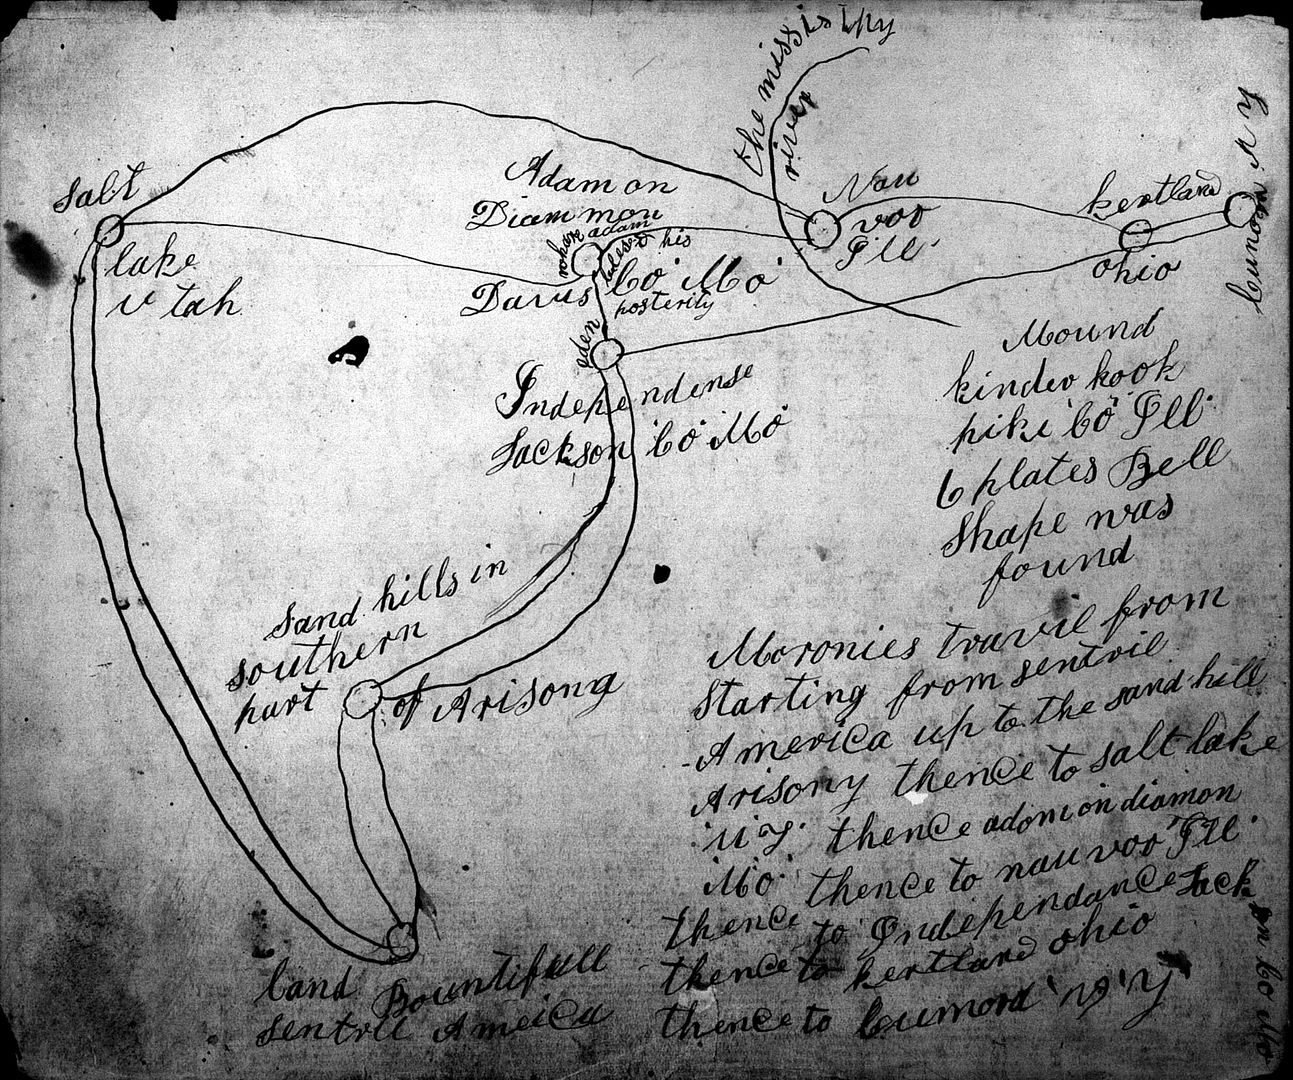 the missisipy
river
salt
lake
u tah
Adam on
Diammon
whare adam
blesst his
posterity
Davis Co Mo
Nau
voo
Ill
kertland
ohio
Cumora N Y
eden
Independense
Jackson Co Mo
Mound
kinder hook
piki Co Ill
6 plates Bell
Shape was
found
sand hills in
southern
part of Arisong
land Bountifull
sentral Ameica
Moronies travil from
starting from sentril
America up to the sand hell
Arisony thence to salt lake
U T thence adom on diamon
Mo thence to nauvoo Ill
thence to Independance Jack
son Co Mo
thence to kertland ohio
thence to Cumora N Y